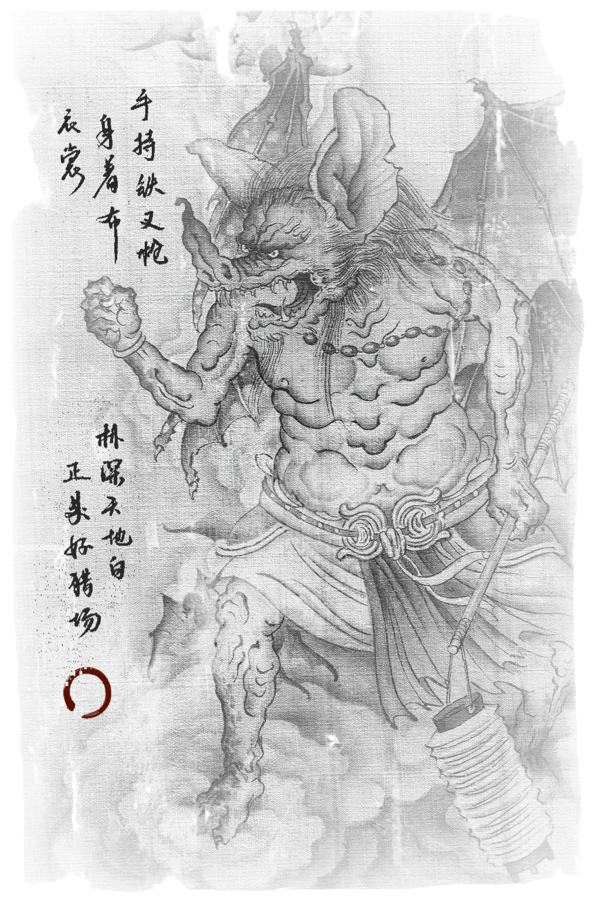 手持铁叉枪
身着布
衣裳
林深天地白
正是好猎场